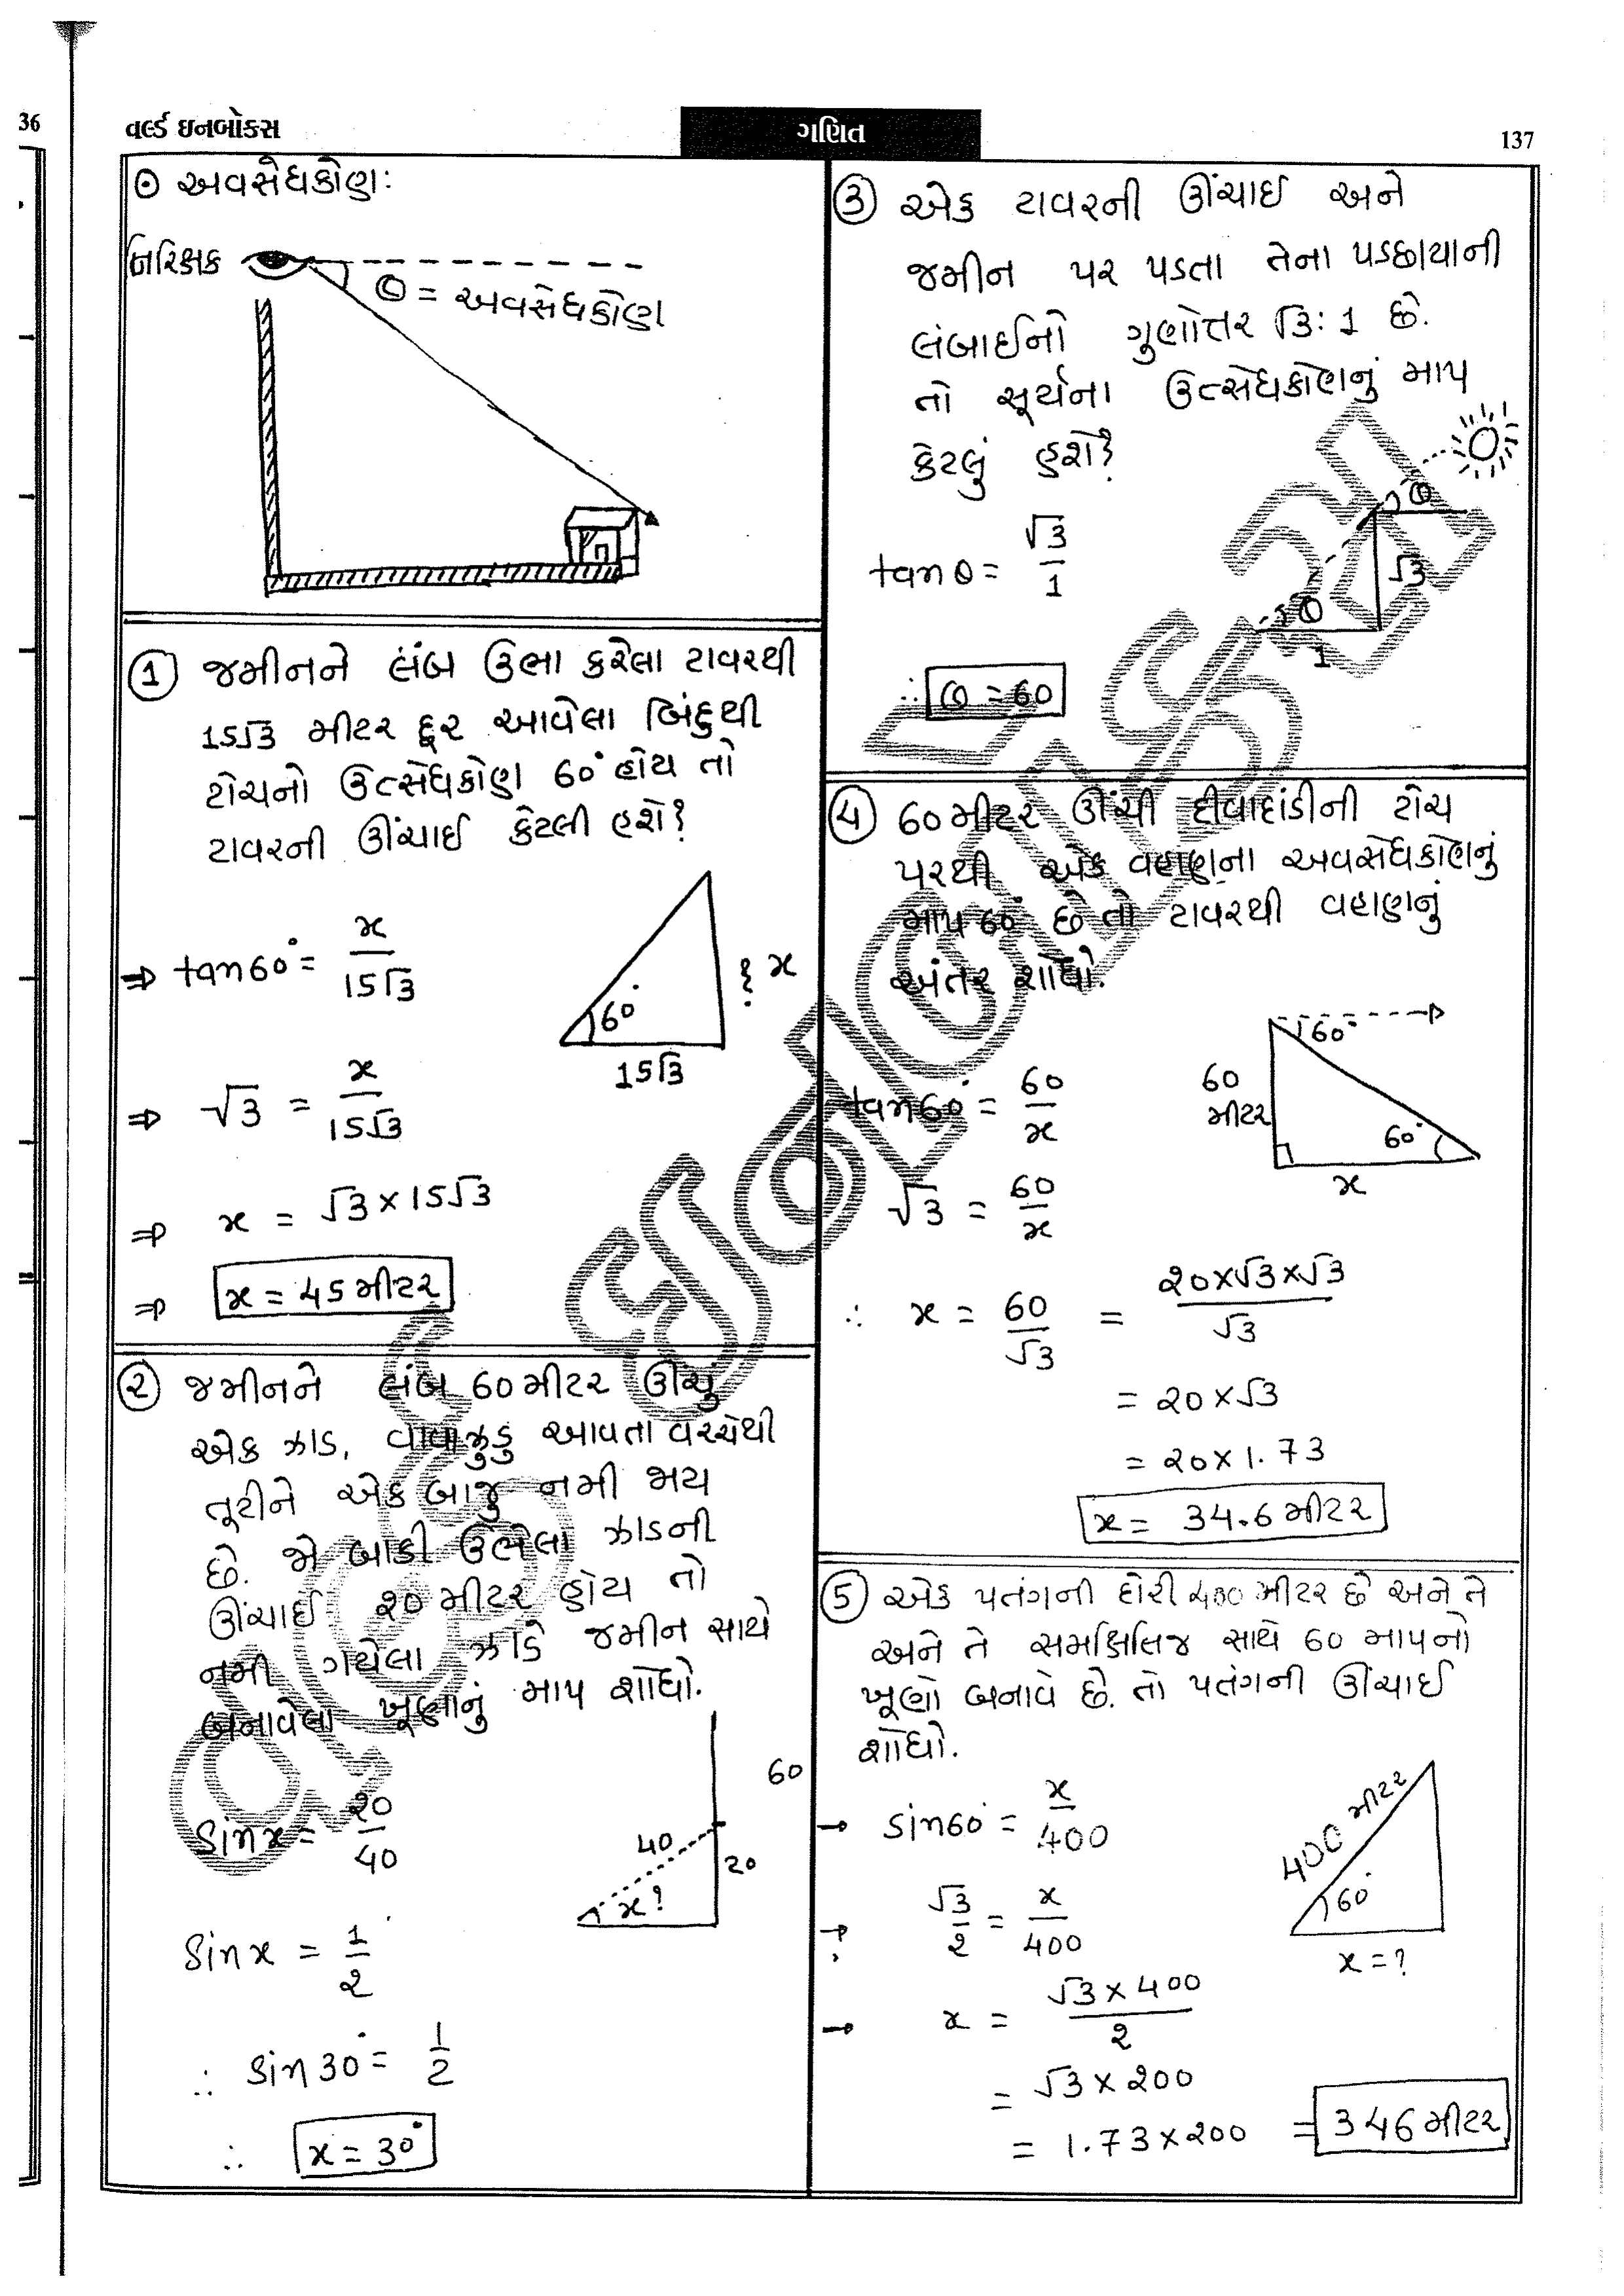 36
વર્લ્ડ ઇનબોક્સ
ગણિત
137
⊙ અવસેધકોણ:
નિરિક્ષક
θ = અવસેધકોણ
① જમીનને લંબ ઉભા કરેલા ટાવરથી
15√3 મીટર દૂર આવેલા બિંદુથી
ટોચનો ઉત્સેધકોણ 60° હોય તો
ટાવરની ઊંચાઈ કેટલી હશે?
⇒ tan60° = x/15√3
60°
? x
15√3
⇒ √3 = x/15√3
⇒ x = √3 × 15√3
⇒ x = 45 મીટર
② જમીનને લંબ 60 મીટર ઊંચુ
એક ઝાડ, વાવાઝુડુ આવતા વચ્ચેથી
તૂટીને એક બાજુ નમી જાય
છે. જો બાકી ઉભેલા ઝાડની
ઊંચાઈ ૨૦ મીટર હોય તો
નમી ગયેલા ઝાડે જમીન સાથે
બનાવેલા ખૂણાનું માપ શોધો.
60
Sin x = ૨૦/40
40
20
x?
Sin x = 1/૨
∴ Sin 30° = 1/2
∴ x = 30°
③ એક ટાવરની ઊંચાઈ અને
જમીન પર પડતા તેના પડછાયાની
લંબાઈનો ગુણોત્તર √3 : 1 છે.
તો સૂર્યના ઉત્સેધકોણનું માપ
કેટલું હશે?
θ
tan θ = √3/1
√3
θ
1
∴ θ = 60
④ 60 મીટર ઊંચી દીવાદાંડીની ટોચ
પરથી એક વહાણના અવસેધકોણનું
માપ 60° છે તો ટાવરથી વહાણનું
અંતર શોધો.
60°
60
મીટર
60°
x
tan60° = 60/x
√3 = 60/x
∴ x = 60/√3 = ૨0×√3×√3/√3
= ૨0 × √3
= ૨0 × 1.73
x = 34.6 મીટર
⑤ એક પતંગની દોરી 400 મીટર છે અને તે
અને તે સમક્ષિતિજ સાથે 60 માપનો
ખૂણો બનાવે છે. તો પતંગની ઊંચાઈ
શોધો.
→ sin60° = x/400
400 મીટર
60°
x = ?
→ √3/૨ = x/400
→ x = √3 × 400/૨
= √3 × ૨00
= 1.73 × ૨00 = 346 મીટર